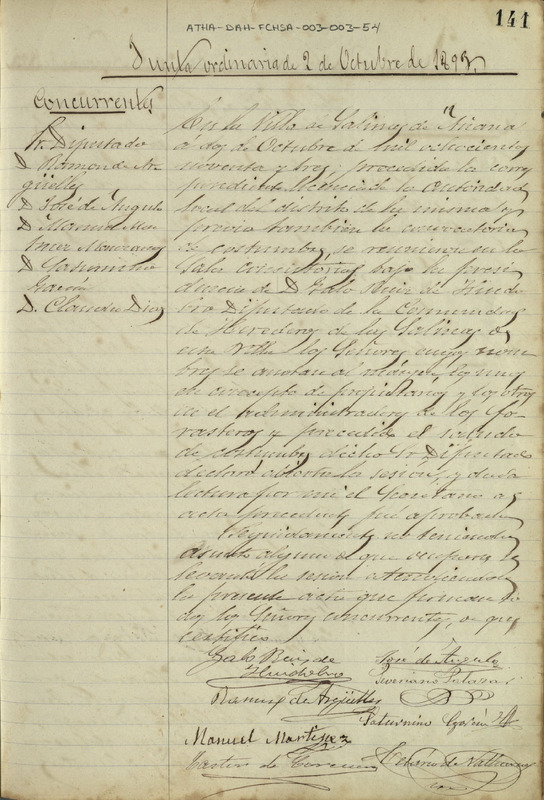 141
ATHA-DAH-FCHSA-003-003-54
Junta ordinaria de 2 de Octubre de 1893.
Concurrentes
Sr. Diputado
D. Ramon de Ar
güelles
D. José de Angulo
D. Manuel Mar
tinez
D. Saturnino
Garcia
D. Claudio Diaz
En la Villa de Salinas de Añana
a dos de Octubre de mil ochocientos
noventa y tres; precedida la corres
pondiente licencia de la autoridad
local del distrito de la misma y
previa tambien la convocatoria
de costumbre, se reunieron en la
Casa bajo la presi
dencia de D. Galo Ruiz de Huido
bro Diputado de la Comunidad
de herederos de las Salinas de
esta Villa los Señores cuyos nom
bres se anotan al margen, los unos
en concepto de propietarios y los otros
en el de administradores de los fo
rasteros y precedido el saludo
de costumbre dicho Sr. Diputado
declaró abierta la sesion, y dada
lectura por mi el Secretario al
acta precedente fué aprobada
Seguidamente no teniendo
asunto alguno de que ocuparse se
levantó la sesion
la presente acta que firman to
dos los Señores concurrentes, de que
certifico.
Galo Ruiz de
Huidobro
José de Angulo
Ramon de Argüelles
Saturnino Garcia
Manuel Martinez